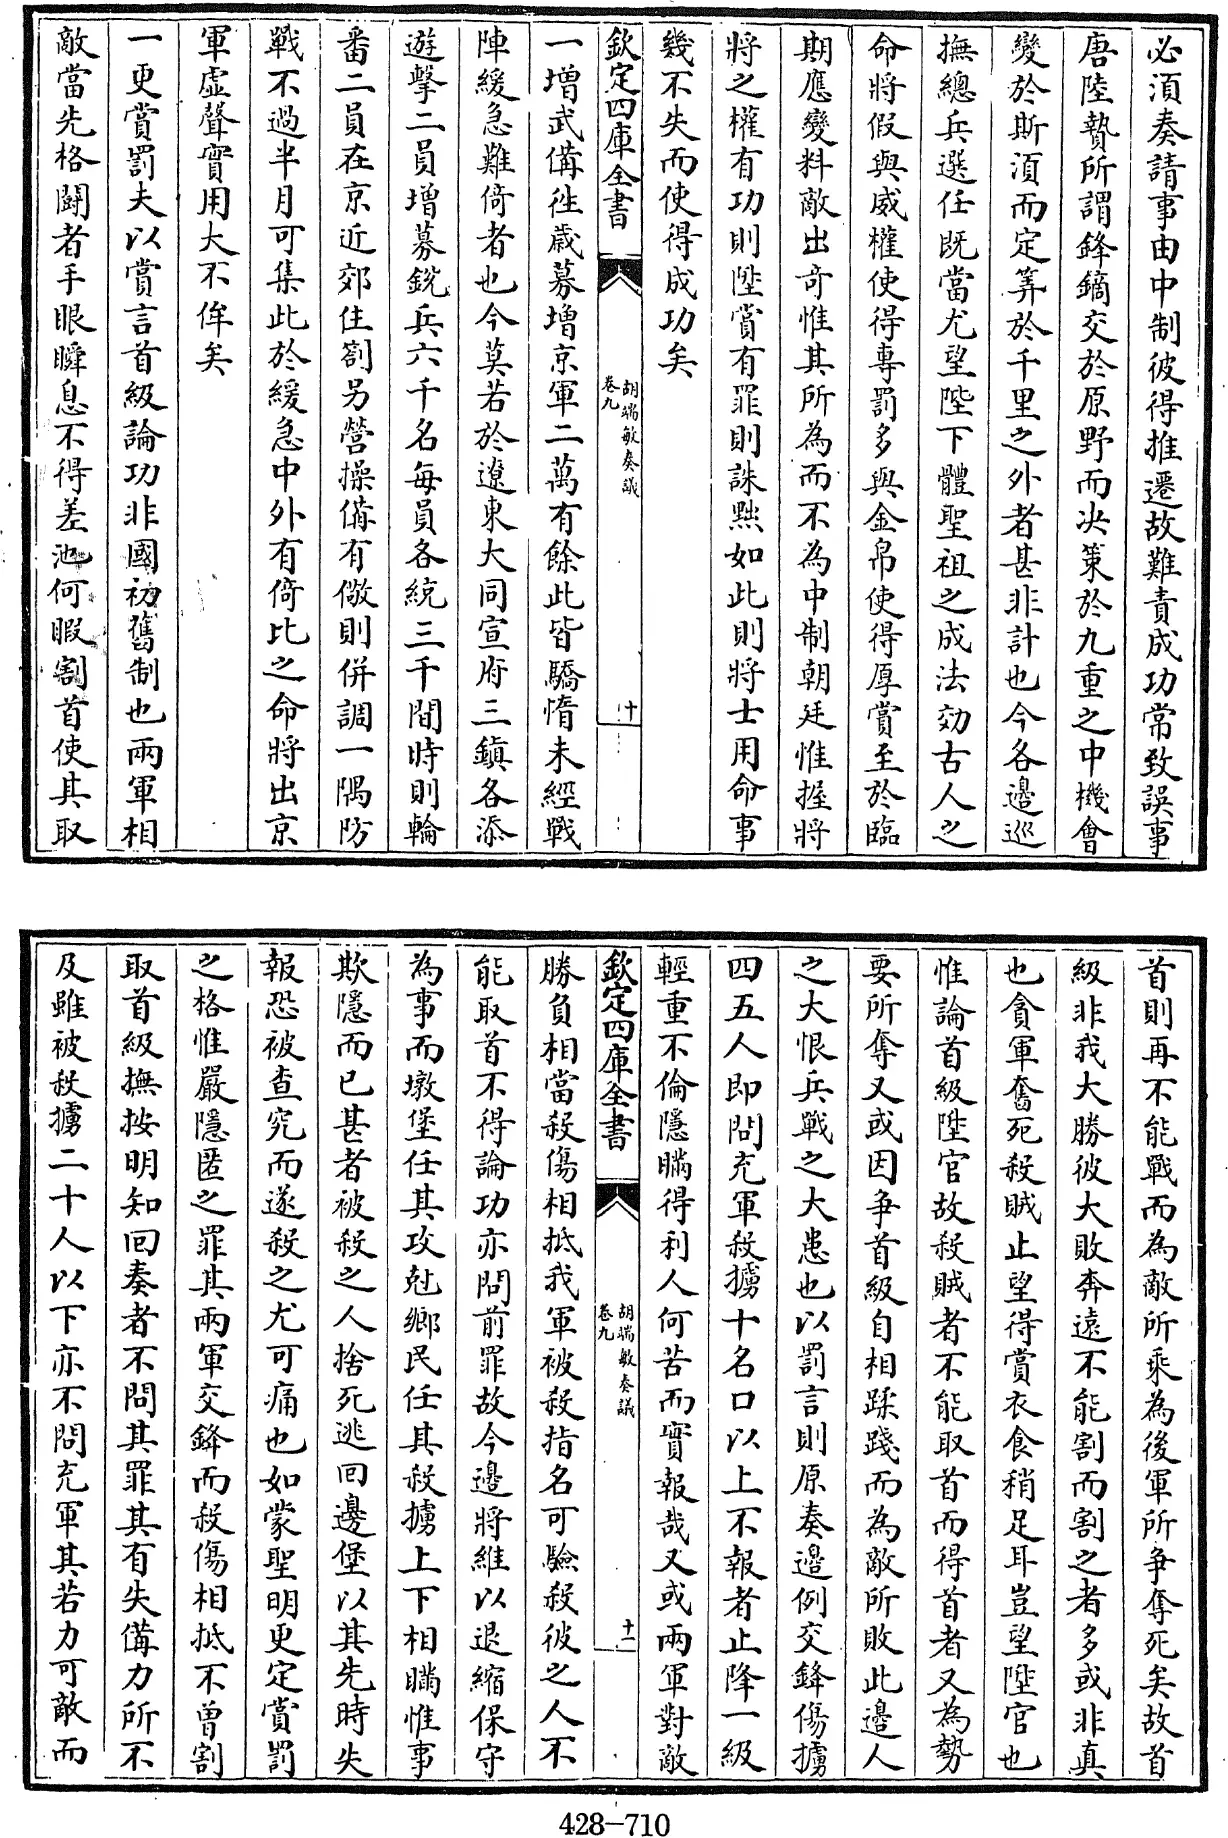 必須奏請事由中制彼得推遷故難責成功常致誤事
唐陸贄所謂鋒鏑交於原野而决策於九重之中機會
變於斯須而定筭於千里之外者甚非計也今各邊巡
撫總兵選任既當尤望陛下體聖祖之成法効古人之
命將假與威權使得專罰多與金帛使得厚賞至於臨
期應變料敵出奇惟其所為而不為中制朝廷惟握將
將之權有功則陞賞有罪則誅黜如此則將士用命事
幾不失而使得成功矣
欽定四庫全書
胡端敏奏議
卷九
十
一增武備徃歳募增京軍二萬有餘此皆驕惰未經戰
陣緩急難倚者也今莫若於遼東大同宣府三鎮各添
遊擊二員增募銳兵六千名每員各統三千間時則輪
番二員在京近郊住劄另營操備有儆則併調一隅防
戰不過半月可集此於緩急中外有倚比之命將出京
軍虛聲實用大不侔矣
一更賞罰夫以賞言首級論功非國初舊制也兩軍相
敵當先格鬭者手眼瞬息不得差池何暇割首使其取
首則再不能戰而為敵所乘為後軍所争奪死矣故首
級非我大勝彼大敗奔遠不能割而割之者多或非真
也貪軍奮死殺賊止望得賞衣食稍足耳豈望陞官也
惟論首級陞官故殺賊者不能取首而得首者又為勢
要所奪又或因争首級自相蹂踐而為敵所敗此邊人
之大恨兵戰之大患也以罰言則原奏邊例交鋒傷擄
四五人即問充軍殺擄十名口以上不報者止降一級
輕重不倫隱瞞得利人何苦而實報哉又或兩軍對敵
欽定四庫全書
胡端敏奏議
卷九
十一
勝負相當殺傷相抵我軍被殺指名可驗殺彼之人不
能取首不得論功亦問前罪故今邊將維以退縮保守
為事而墩堡任其攻尅鄉民任其殺擄上下相瞞惟事
欺隱而已甚者被殺之人捨死逃回邊堡以其先時失
報恐被查究而遂殺之尤可痛也如蒙聖明更定賞罰
之格惟嚴隱匿之罪其兩軍交鋒而殺傷相抵不曽割
取首級撫按明知回奏者不問其罪其有失備力所不
及雖被殺擄二十人以下亦不問充軍其若力可敵而
428-710